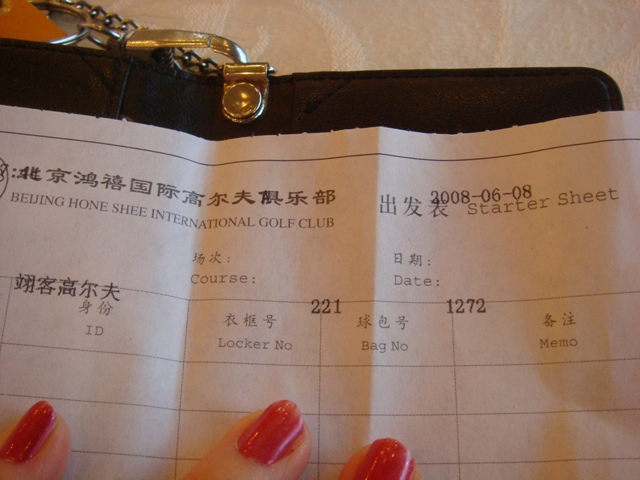 北京鸿禧国际高尔夫俱乐部
BEIJING HONE SHEE INTERNATIONAL GOLF CLUB
出发表 2008-06-08
Starter Sheet
场次:
Course:
日期:
Date:
翊客高尔夫
身份
ID
衣框号 221
Locker No
球包号 1272
Bag No
备注
Memo